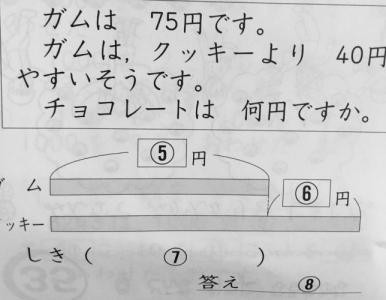 ガムは 75円です。
ガムは, クッキーより 40円
やすいそうです。
チョコレートは 何円ですか。
⑤ 円
ム ⑥ 円
ッキー
しき( ⑦ )
答え ⑧